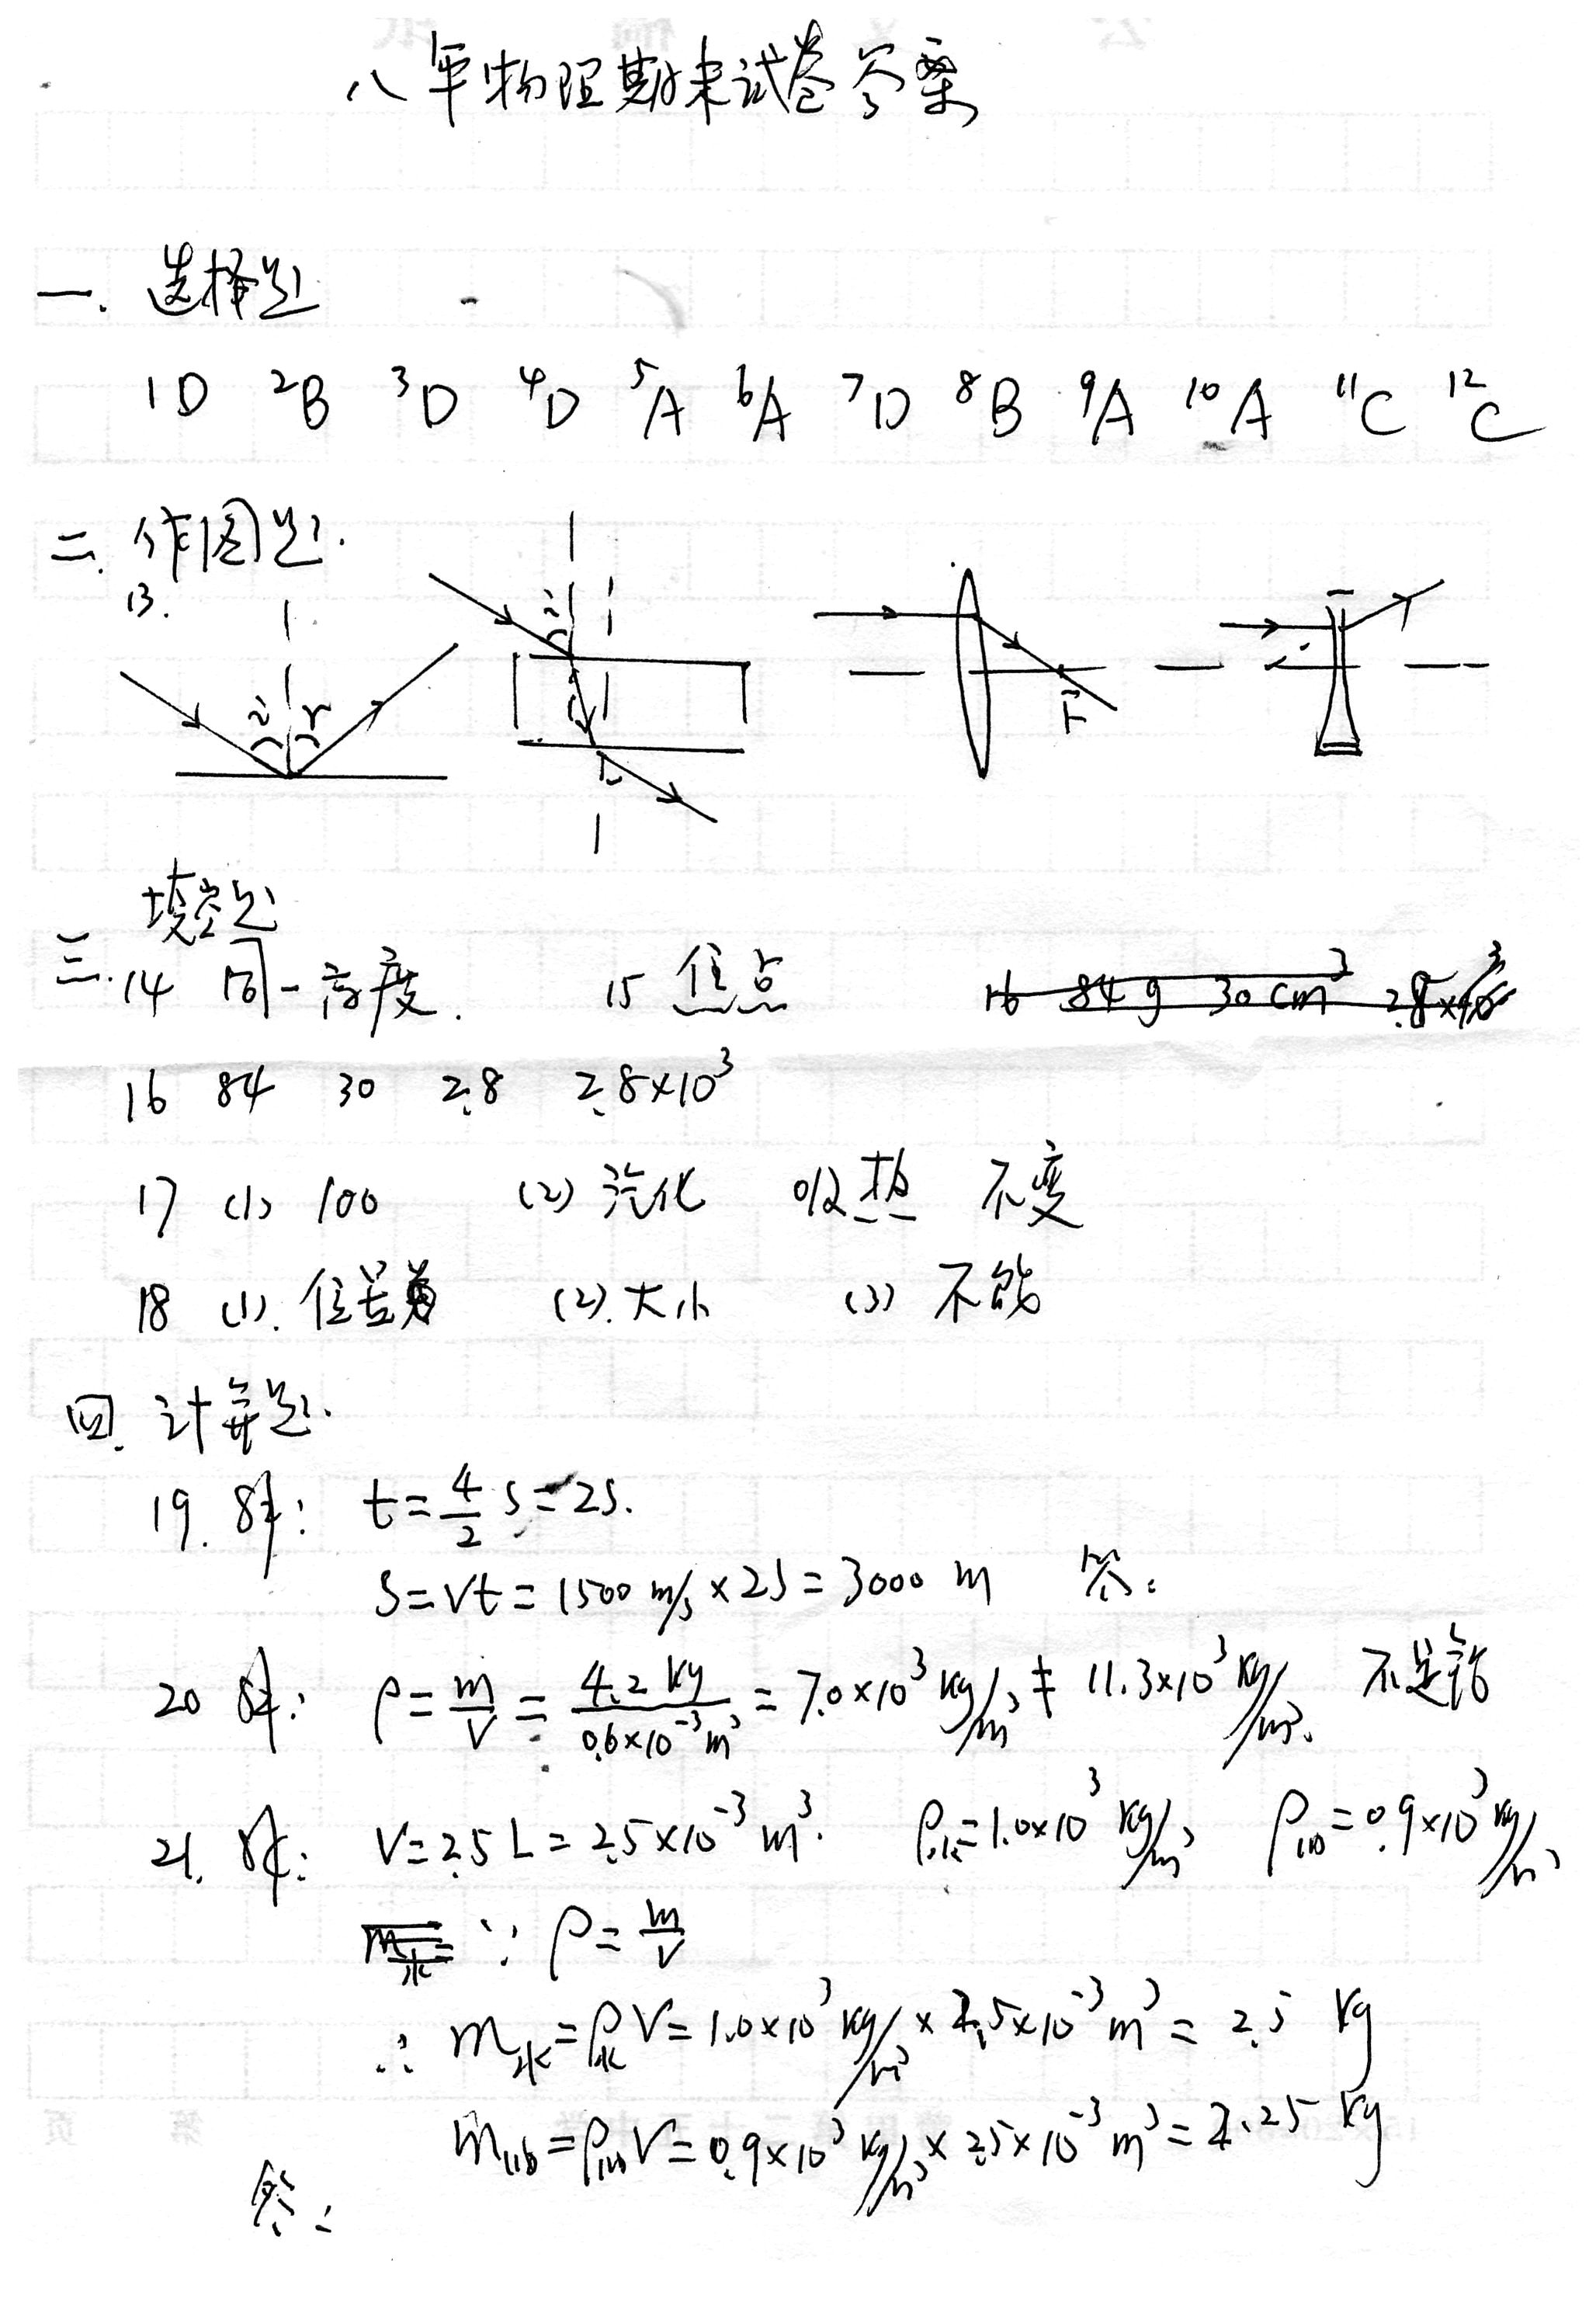 八年物理期末试卷答案
一. 选择题
1D 2B 3D 4D 5A 6A 7D 8B 9A 10A 11C 12C
二. 作图题.
13.
i r
i
F
三. 填空题
14 同一高度. 15 焦点 16 84g 30cm³
16 84 30 2.8 2.8×10³
17 (1) 100 (2) 汽化 吸热 不变
18 (1). 位置 (2). 大小 (3) 不能
四. 计算题.
19. 解: t=4/2 s=2s.
S=vt=1500 m/s×2s=3000 m 答:
20 解: ρ=m/V=4.2 kg/0.6×10⁻³m³=7.0×10³kg/m³≠11.3×10³kg/m³. 不是铅
21. 解: V=2.5L=2.5×10⁻³m³. ρ水=1.0×10³kg/m³ ρ油=0.9×10³kg/m³
m水= ∵ ρ=m/V
∴ m水=ρ水V=1.0×10³kg/m³×2.5×10⁻³m³=2.5 kg
m油=ρ油V=0.9×10³kg/m³×2.5×10⁻³m³=2.25 kg
答: